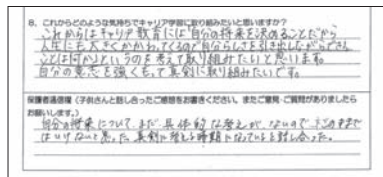 8、これからどのような気持ちでキャリア学習に取り組みたいと思いますか?
これからはキャリア教育には自分の将来を決めることだから
人生にも大きくかかわってくるので自分らしさを引き出しながらできる
ことは何かというのを考えて取り組みたいと思います。
自分の意志を強くもって真剣に取り組みたいです。
保護者通信欄(子供さんと話し合ったご感想をお書きください。またご意見・ご質問がありましたら
お願いします。)
自分の将来について、まだ具体的な考えが、ないので、このままで
はいけないと思った。真剣に考える時期になっていると話し合った。